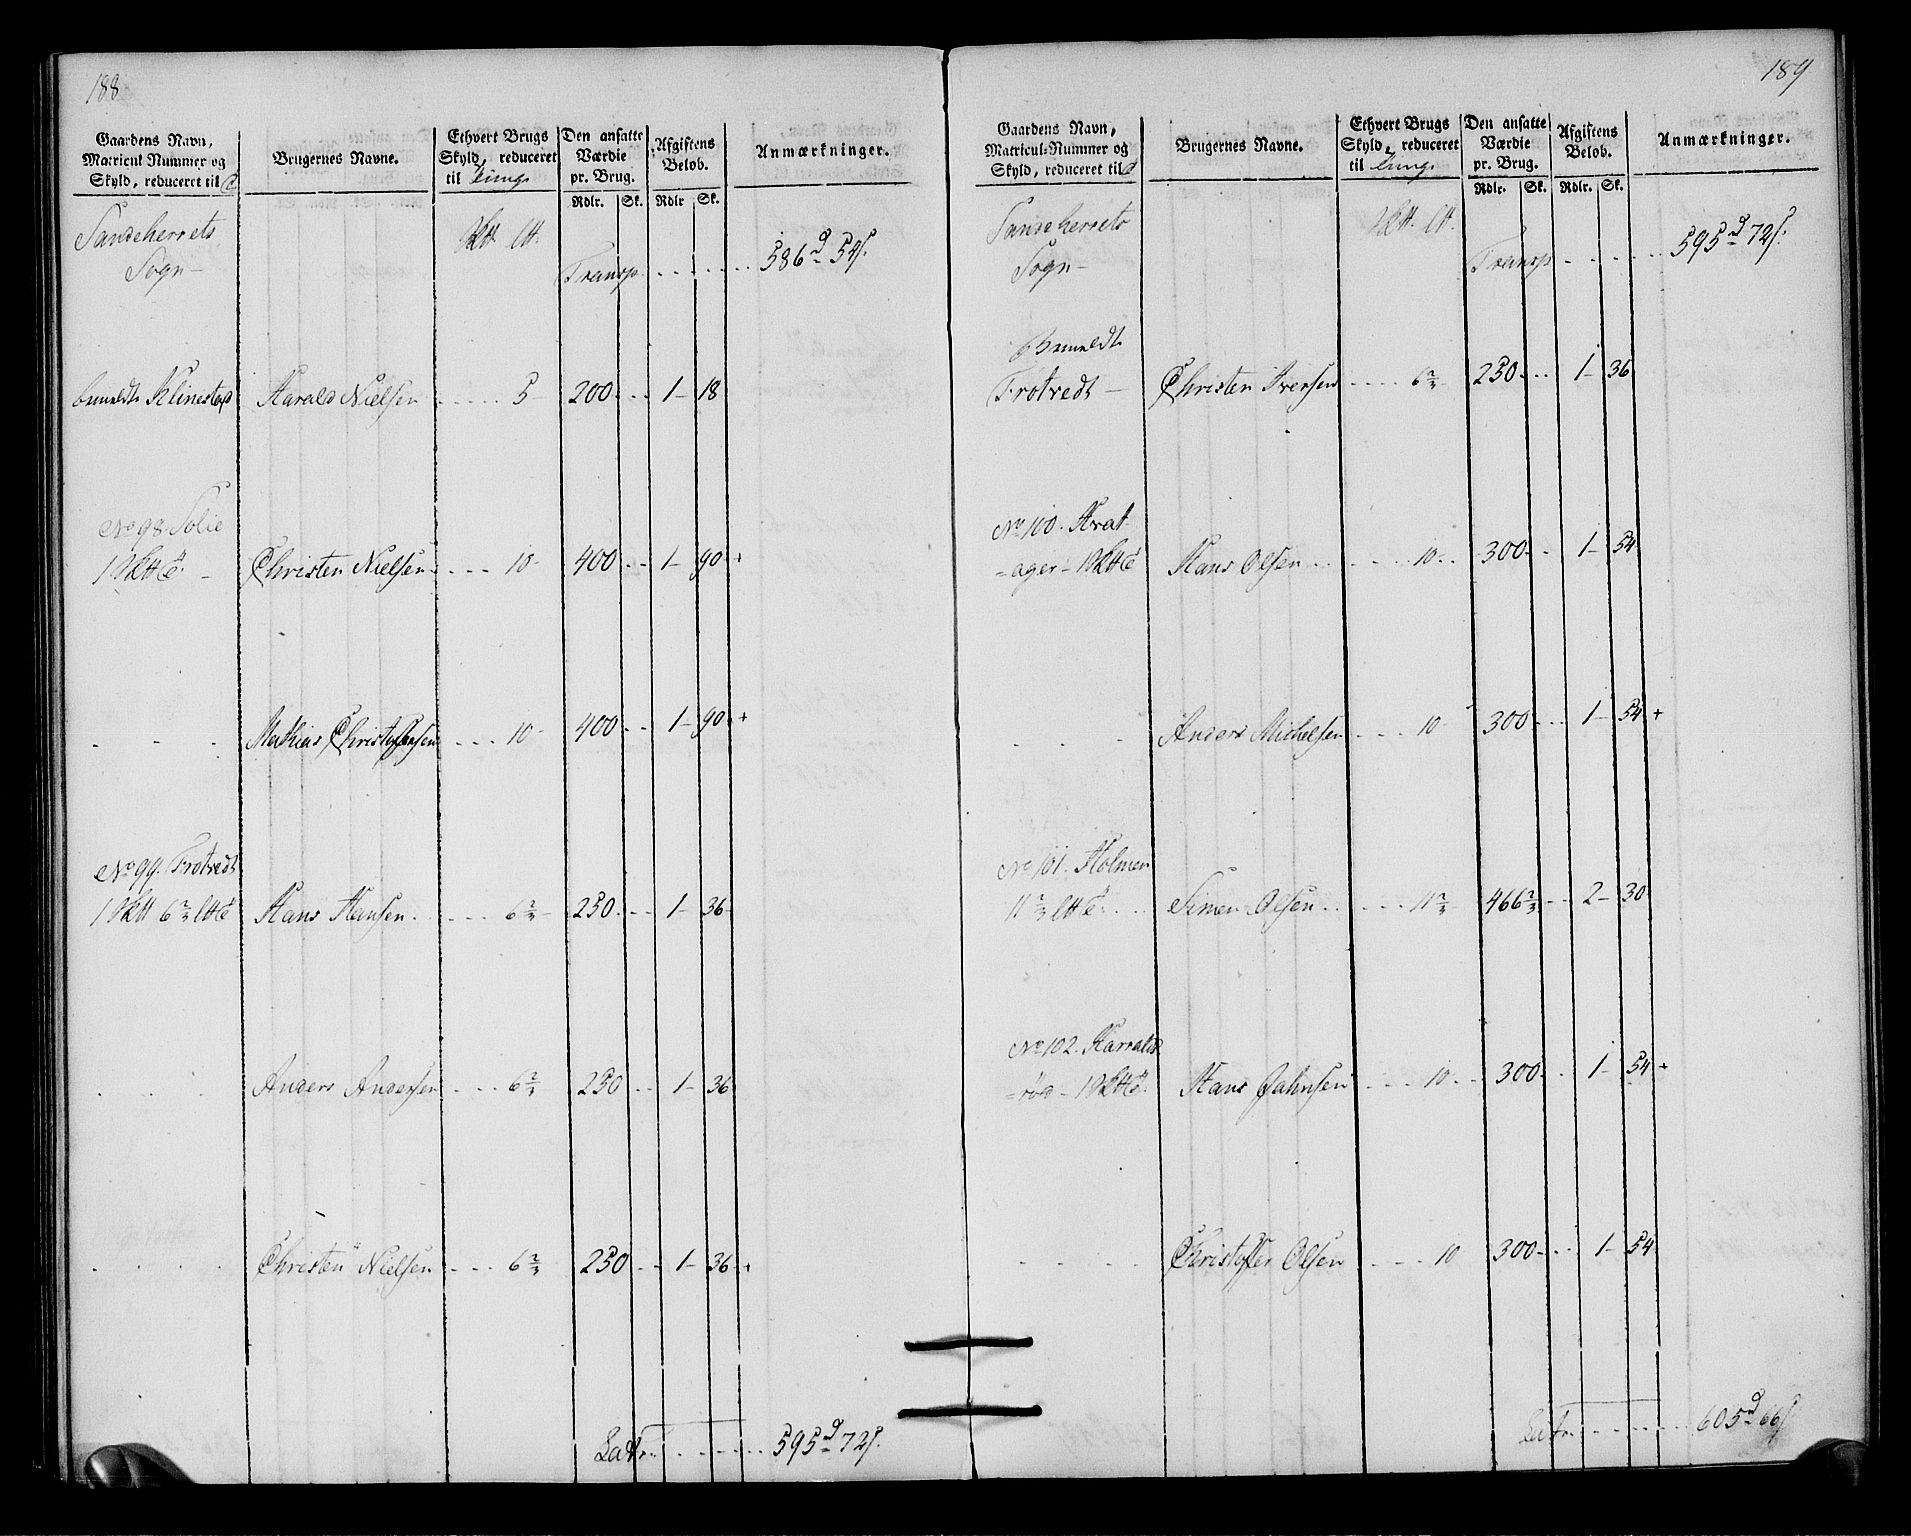 188
Gaardens Navn, Matricul Nummer og Skyld, reduceret til
Brugernes Navne.
Ethvert Brugs Skyld, reduceret til Tunge
Den ansatte Værdie pr. Brug.
Afgiftens Beløb.
Anmærkninger.
Rdlr. Sk. Rdlr Sk.
Sandeherrets
Sogn
Transp. 586 d 54 s.
bemeldte Klinestad Harald Nielsen 5 200 1 18
No 98. Solie
Christen Nielsen 10 400 1 90 +
Mathias Christophersen 10 400 1 90 +
No 99. Frotvedt
Hans Hansen 6 2/3 250 1 36
Anders Andersen 6 2/3 250 1 36
Christen Nielsen 6 2/3 250 1 36 +
Latr. 595 d 72 s.
189
Gaardens Navn, Matricul-Nummer og Skyld, reduceret til
Brugernes Navne.
Ethvert Brugs Skyld, reduceret til Tunge
Den ansatte Værdie pr. Brug.
Afgiftens Beløb.
Anmærkninger.
Rdlr. Sk. Rdlr. Sk.
Sandeherrets
Sogn
Transp 595 d 72 s.
Bemeldte
Frotvedt Christen Iversen 6 2/3 250 1 36
No 100. Hvat
=ager Hans Olsen 10 300 1 54
Anders Michelsen 10 300 1 54 +
No 101. Holmen
Simen Olsen 11 2/3 466 2/3 2 30
No 102. Harralds
=rød Hans Jahnsen 10 300 1 54 +
Christoffer Olsen 10 300 1 54
Latr. 605 d 66 s